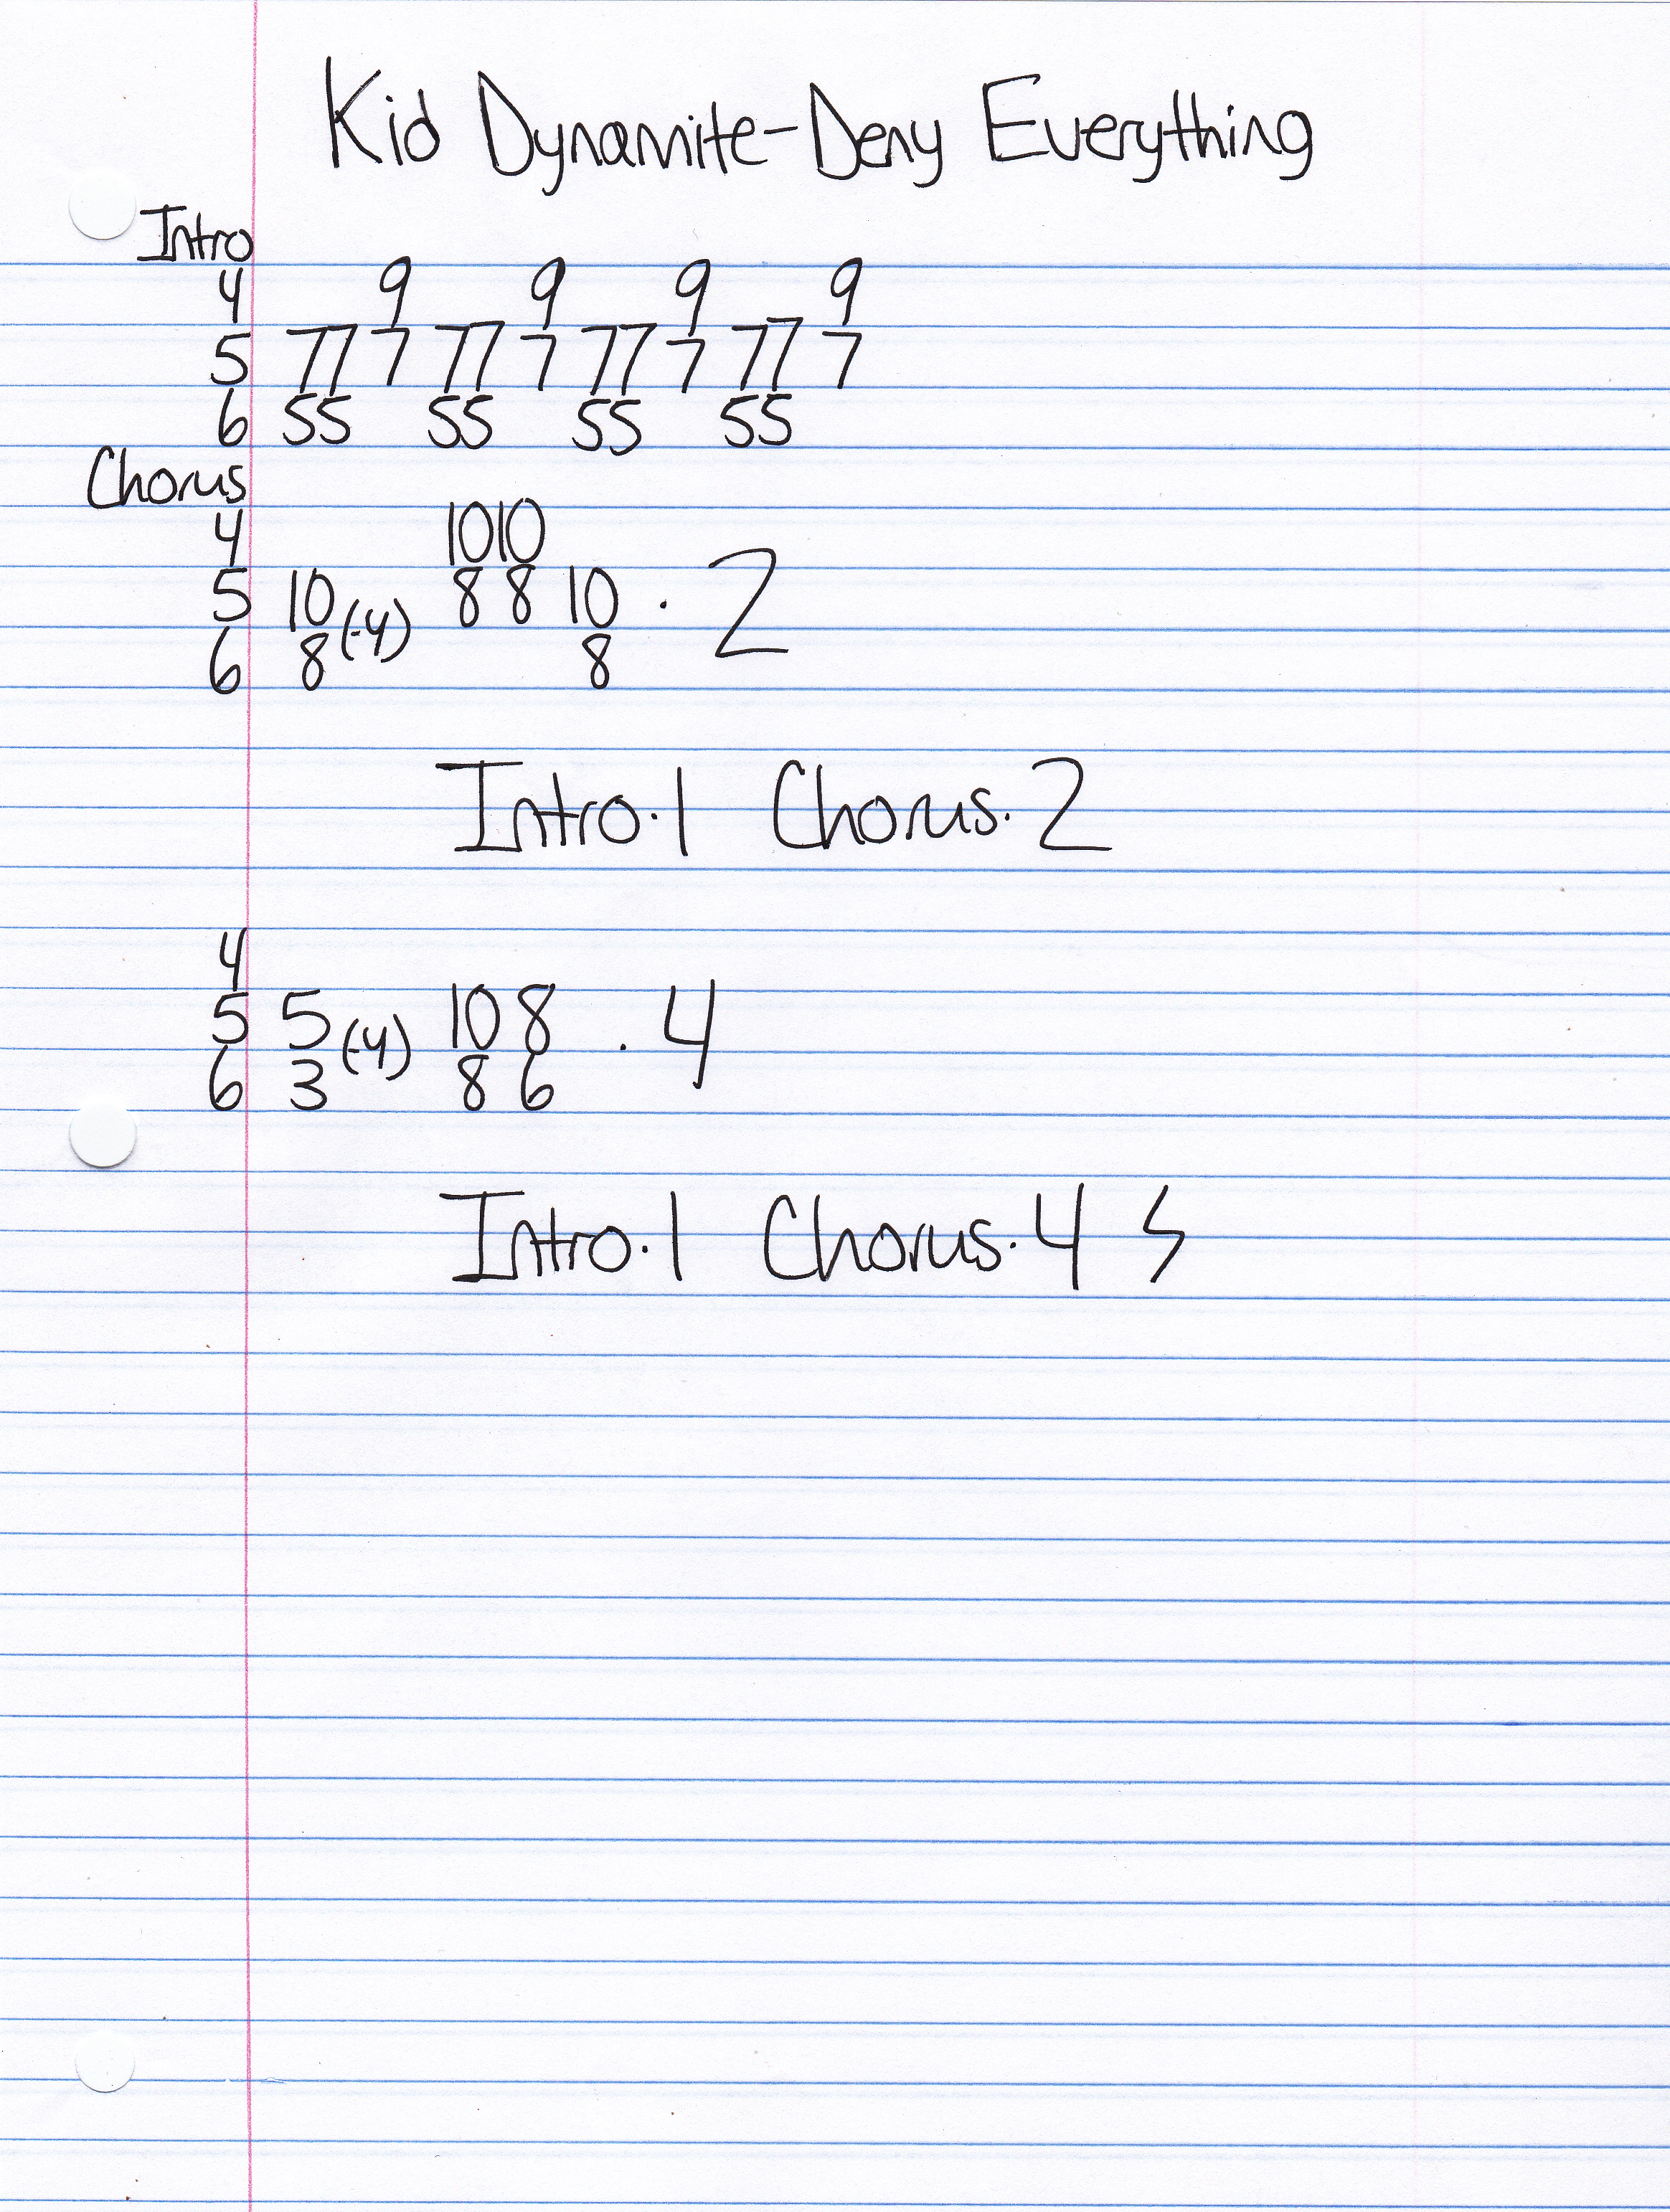 Kid Dynamite-Deny Everything
Intro
4 9 9 9 9
5 77 7 77 7 77 7 77 7
6 55 55 55 55
Chorus
4 10 10
5 10 (-4) 8 8 10 · 2
6 8 8
Intro·1 Chorus·2
4
5 5 (-4) 10 8 · 4
6 3 8 6
Intro·1 Chorus·4